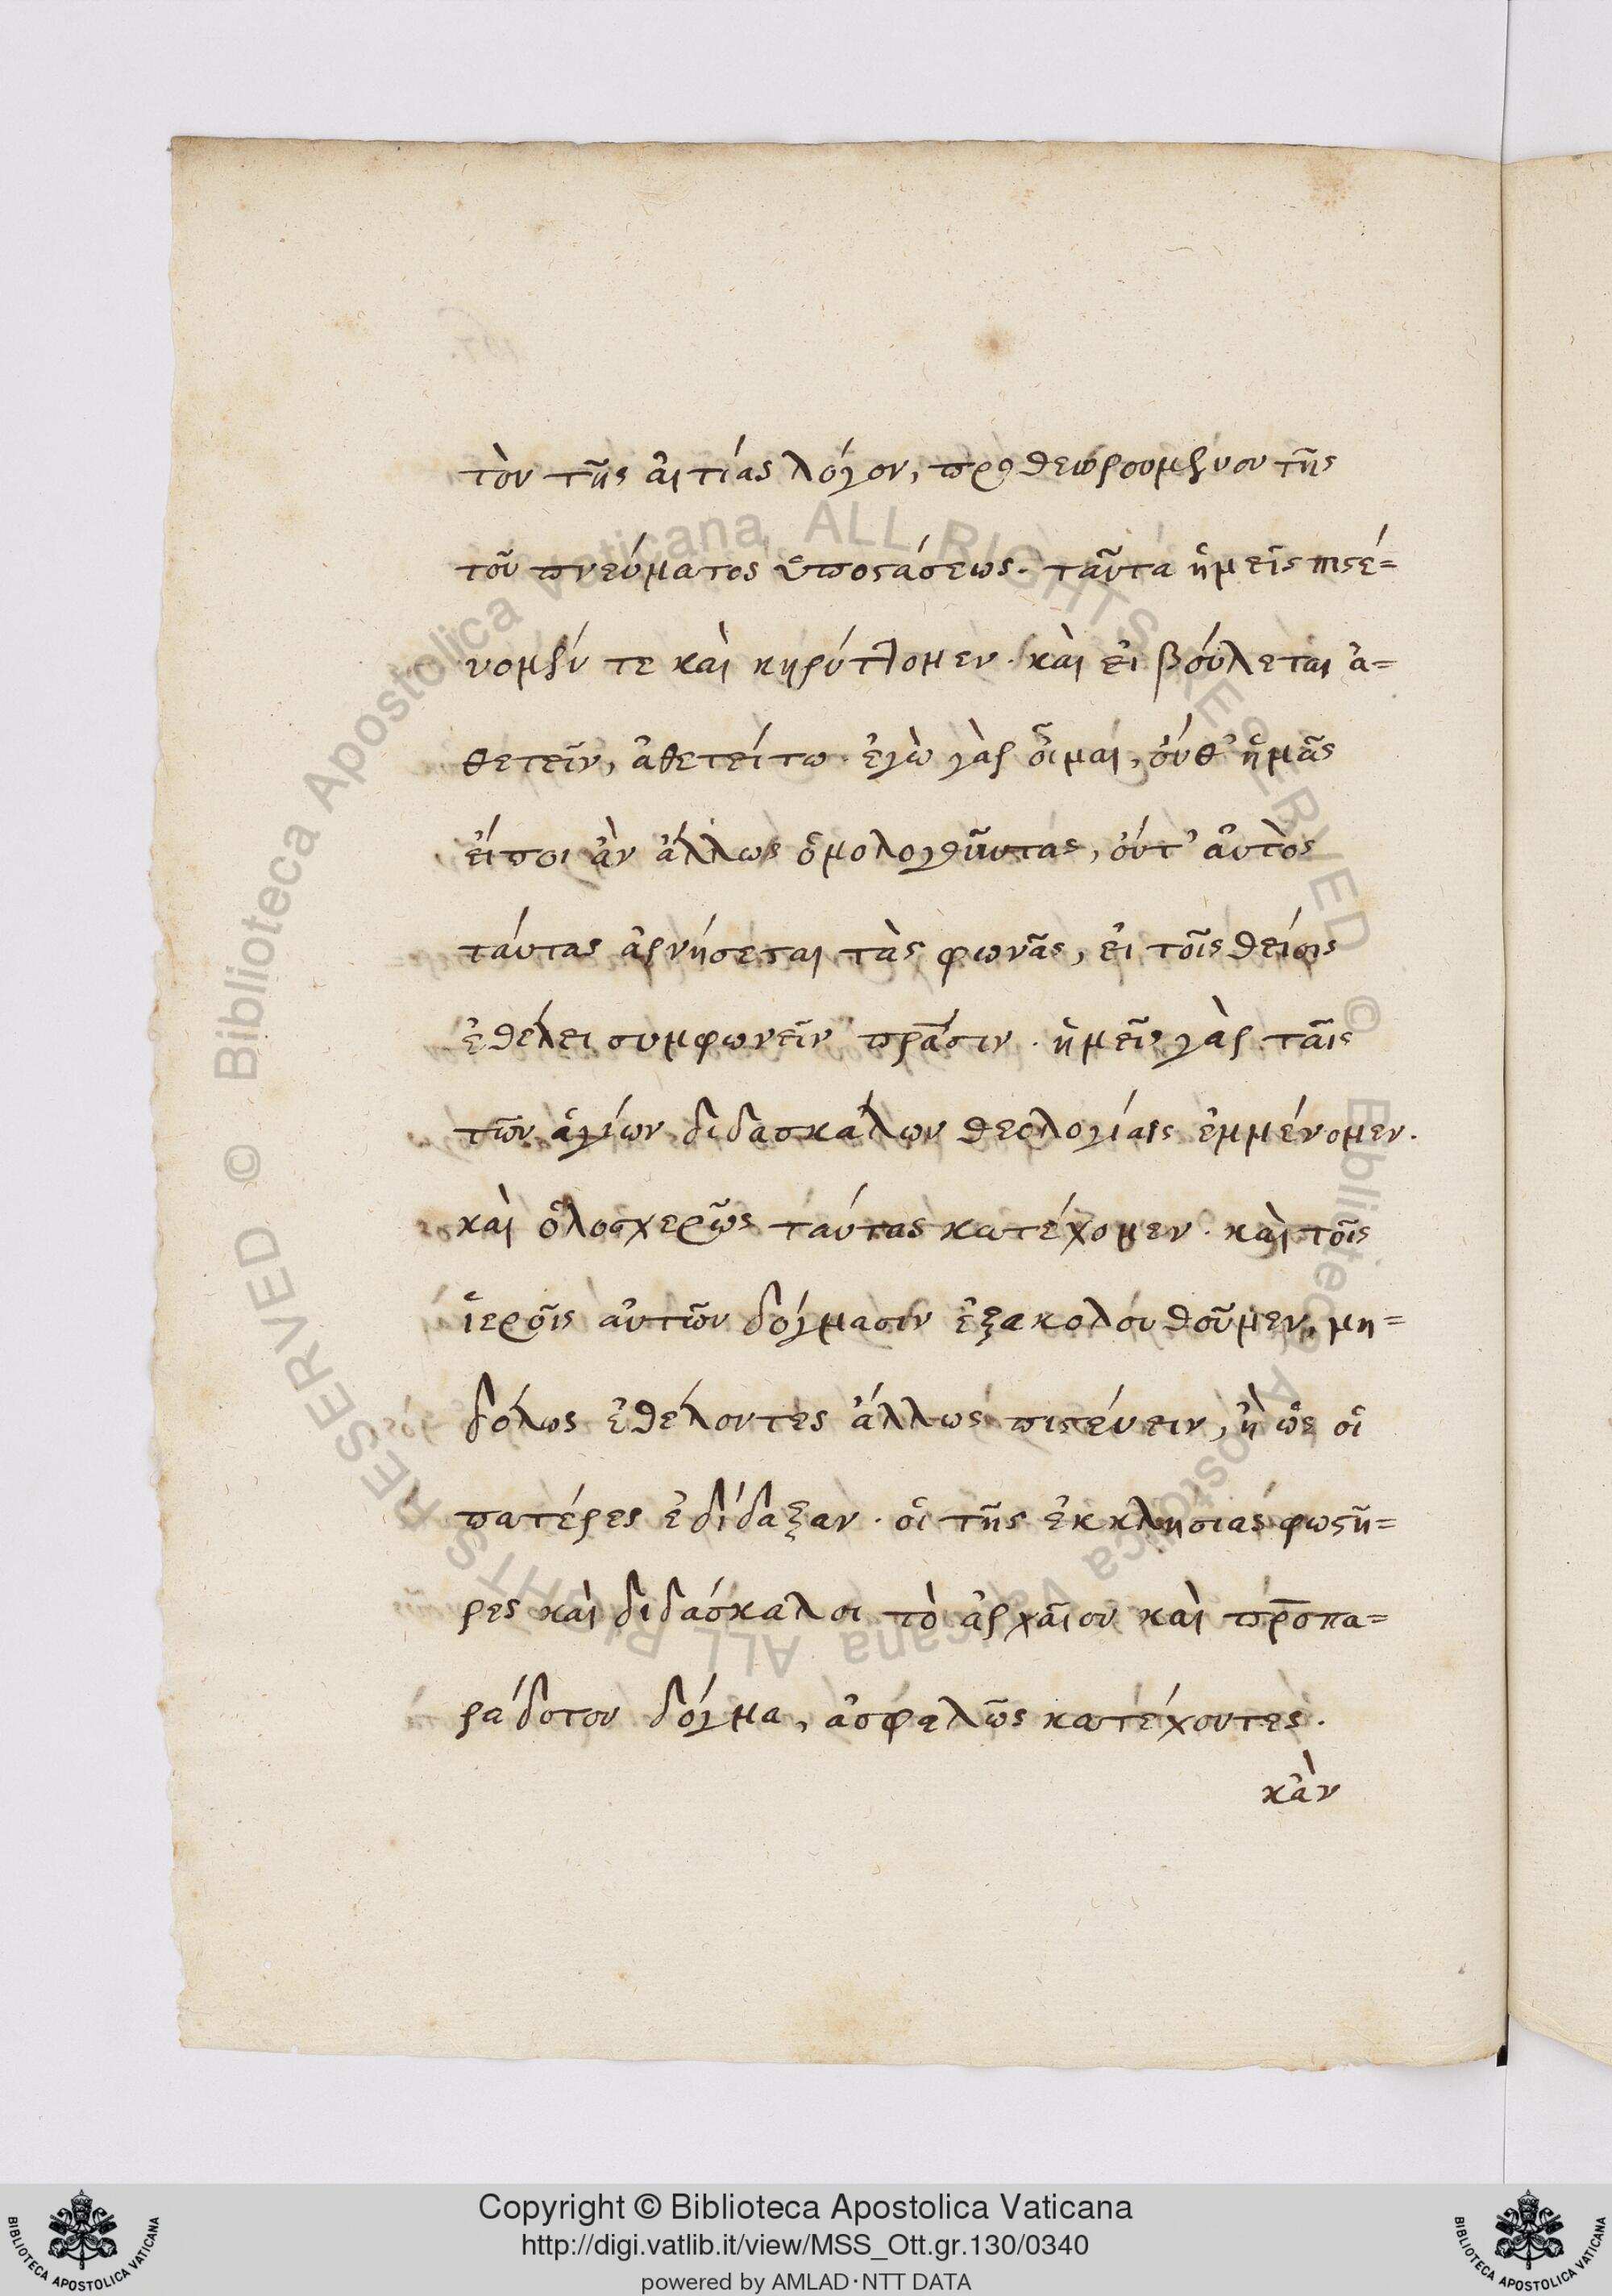 τὸν τῆς αἰτίας λόγον, προθεωρουμένου τῆς
τοῦ πνεύματος ὑποστάσεως. ταῦτα ἡμεῖς πιστέ=
νομέν τε καὶ κηρύττομεν. καὶ εἰ βούλεται ἀ=
θετεῖν, ἀθετείτω. ἐγὼ γὰρ οἶμαι, οὔθ' ἡμᾶς
εἴποι ἂν ἄλλως ὁμολογοῦντας, οὔτ' αὐτὸς
ταύτας ἀρνήσεται τὰς φωνᾶς, εἰ τοῖς θείοις
ἐθέλει συμφωνεῖν πρᾶσιν. ἡμεῖς γὰρ ταῖς
τῶν ἁγίων διδασκάλων θεολογίαις ἐμμένομεν.
καὶ ὁλοσχερῶς ταύτας κατέχομεν. καὶ τοῖς
ἱεροῖς αὐτῶν δόγμασιν ἐξακολουθοῦμεν, μη=
δόλως ἐθέλοντες ἄλλως πιστεύειν, ἢ ὡς οἱ
πατέρες ἐδίδαξαν. οἱ τῆς ἐκκλησίας φωστῆ=
ρες καὶ διδάσκαλοι τὸ ἀρχαῖον καὶ προπα=
ράδοτον δόγμα, ἀσφαλῶς κατέχοντες.
κἂν
Copyright © Biblioteca Apostolica Vaticana
http://digi.vatlib.it/view/MSS_Ott.gr.130/0340
powered by AMLAD·NTT DATA